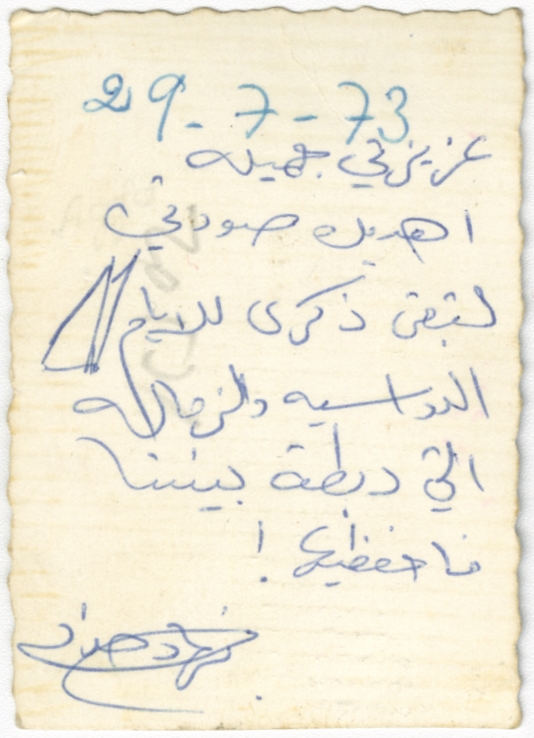 29-7-73
عزيزتي جميله
اهديك صورتي
لتبقى ذكرى للايام
الدراسيه والزماله
التي ربطة بيننا
فاحفظيها!